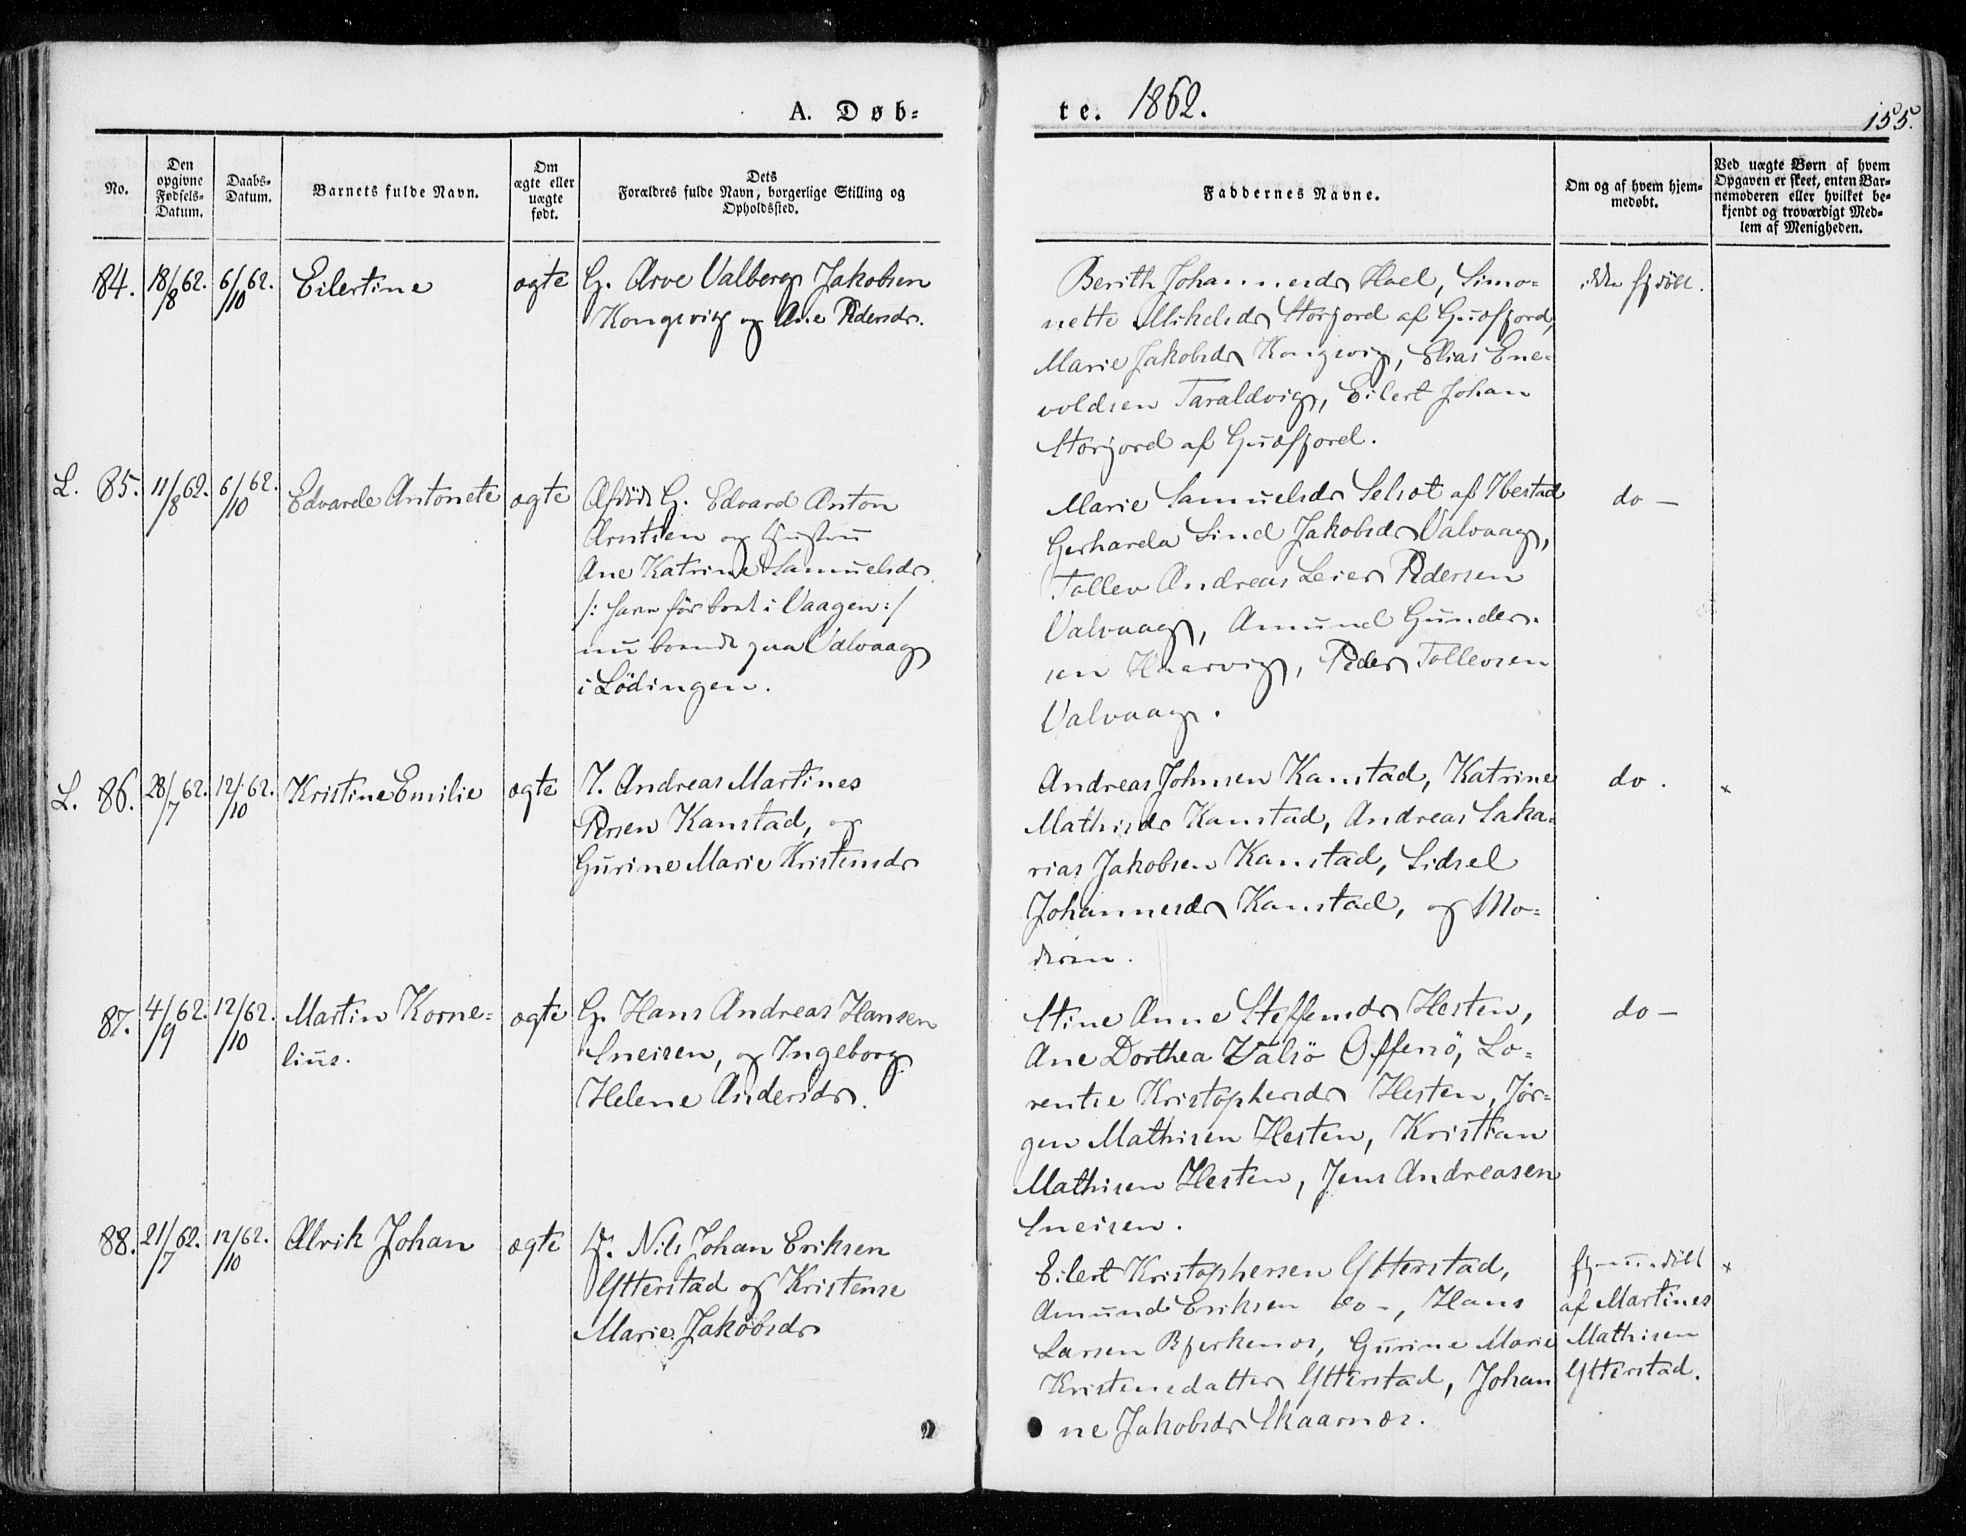 A. Døb-
te. 1862.
155.
No.
Den opgivne Fødsels-Datum.
Daabs-Datum.
Barnets fulde Navn.
Om ægte eller uægte født.
Dets Forældres fulde Navn, borgerlige Stilling og Opholdssted.
Faddernes Navne.
Om og af hvem hjem-medøbt.
Ved uægte Børn af hvem Opgaven er skeet, enten Bar-nemoderen eller hvilket be-kjendt og troværdigt Med-lem af Menigheden.
84. 18/8 62. 6/10 62. Eilertine ægte G. Arve Valberg Jakobsen
Kongsvig og Ane Pedersdr.
Berith Johannesdr Hoel, Simo-
nette Mikelsdr Storjord af Gudfjord,
Marie Jakobsdr Kongsvig, Elias Ene-
voldsen Taraldvig, Eilert Johan
Storjord af Gudfjord.
ikke hjdöbt.
L. 85. 11/8 62. 6/10 62. Edvarde Antonete ægte Afdöde G. Edvard Anton
Arntsen og Hustru
Ane Katrine Samuelsdr.
/: han för boet i Vaagen:/
nu boende paa Valvaag
i Lödingen.
Marie Samuelsdr Selsæt af Ibestad
Gerharda Sind Jakobsdr Valvaag,
Tollev Andreas Leier Pedersen
Valvaag, Amund Gunder-
sen Haarvig, Peder Tollevsen
Valvaag.
do —
L. 86. 28/7 62. 12/10 62. Kristine Emilie ægte I. Andreas Martines
Persen Kanstad, og
Gurine Marie Kristensdr
Andreas Johnsen Kanstad, Katrine
Mathisdr Kanstad, Andreas Saka-
rias Jakobsen Kanstad, Sidsel
Johannesdr Kanstad, og Mo-
deren.
do.
x
87. 4/9 62. 12/10 62. Martin Korne-
lius.
ægte G. Hans Andreas Hansen
Sneisen, og Ingeborg
Helene Andersdr.
Stine Anne Steffensdr Hesten,
Ane Dorthea Valsö Offersö, Lo-
rentse Kristophersdr Hesten, Jör-
gen Mathisen Hesten, Kristian
Mathisen Hesten, Jens Andreasen
Sneisen.
do —
88. 21/7 62. 12/10 62. Alrik Johan ægte Nils Johan Eriksen
Ytterstad og Kristense
Marie Jakobsdr
Eilert Kristophersen Ytterstad,
Amund Eriksen do -, Hans
Larsen Bjerkenæs, Gurine Marie
Kristensdatter Ytterstad, Johan
ne Jakobsdr Skaarnæs.
hjemmedöbt
af Martines
Mathisen
Ytterstad.
x